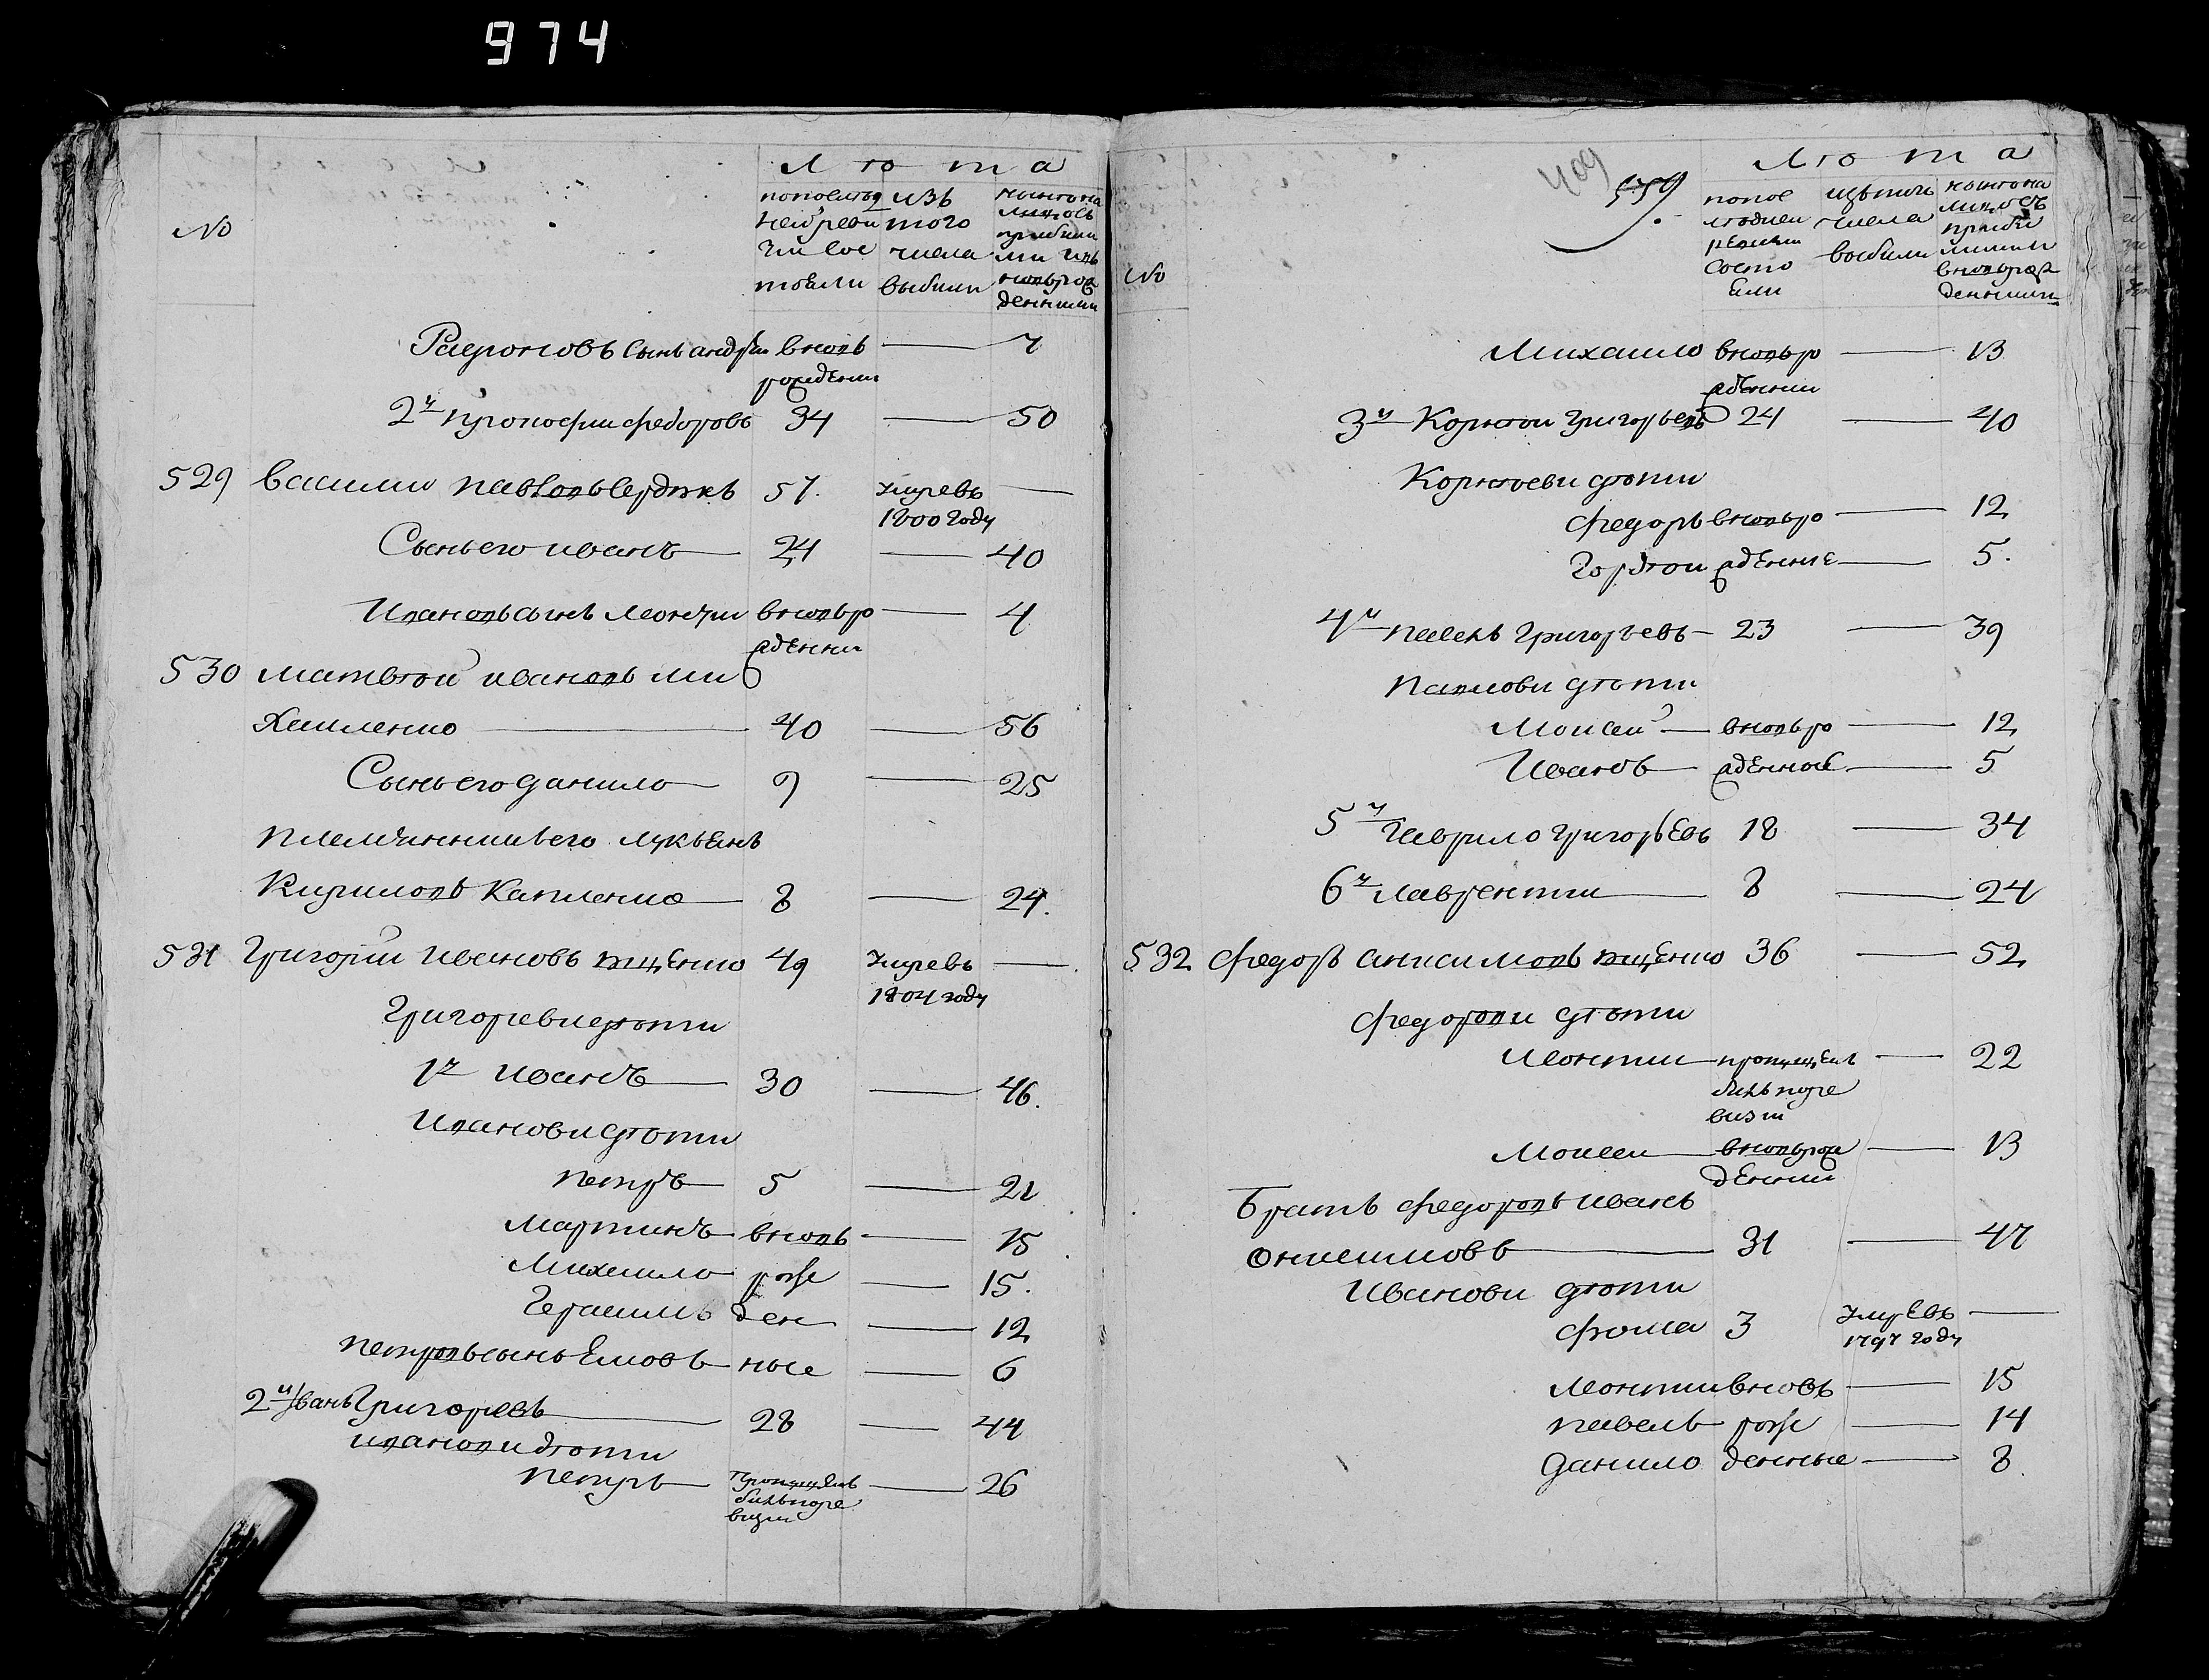 974
Л ѣ т а
№
по последней ревизии состояли
изъ того числа выбыли
ныне на лицо съ прибылыми и вновь рожденными
Сынъ Андрей вновь — 7
рожденний
2й Прокофий Федоровъ 34 — 50
529 Василий Павловъ Сердюкъ 57. умревъ —
1800 году
Сынъ его Иванъ — 24 — 40
Ивановъ сынъ Леонтий вновь ро — 4
жденни
530 Матвѣй Ивановъ Ми
хайленко — 40 — 56
Сынъ его Данило — 9 — 25
племянникъ его Лукьянъ
Кирилловъ Капленко — 8 — 24.
531 Григорий Ивановъ Ищенко 49 умревъ —
1804 году
Григориеви дѣти
1й Иванъ — 30 — 46.
Иванови дѣти
Петръ — 5 — 21
Мартинъ — вновь — 15
Михайло — рож — 15.
Герасимъ ден — 12
Петровъ сынъ — ные — 6
2й Иванъ Григоревъ — 28 — 44
Иванови дѣти
Петръ — пропущенъ — 26
билъ по ре
визии
Л ѣ т а
409
559
№
по пос
лѣдней
ревизии
состо
яли
изъ того
числа
выбили
ныне на
лицо съ
прибы
лими и
вновь рож
денними
Михайло вновь ро — 13
жденний
3й Корнѣй Григорьевъ 24 — 40
Корнѣеви дѣти
Федоръ вновь ро — 12
Гордѣй жденние — 5.
4й Павелъ Григорьевъ — 23 — 39
Павлови дѣти
Моисей — вновь ро — 12
Иванъ — жденные — 5
5й Гаврило Григорьевъ 18 — 34
6й Лаврентий — 8 — 24
532 Федоръ Анисимовъ Ищенко 36 — 52
Федорови дѣти
Леонтий — пропущенъ — 22
билъ по ре
визии
Моисей — вновь рож — 13
денний
Братъ Федоровъ Иванъ
Онисимовъ — 31 — 47
Иванови дѣти
Фома 3 умревъ —
1797 году
Леонтий вновь — 15
Павелъ — рож — 14
Данило денные — 8.